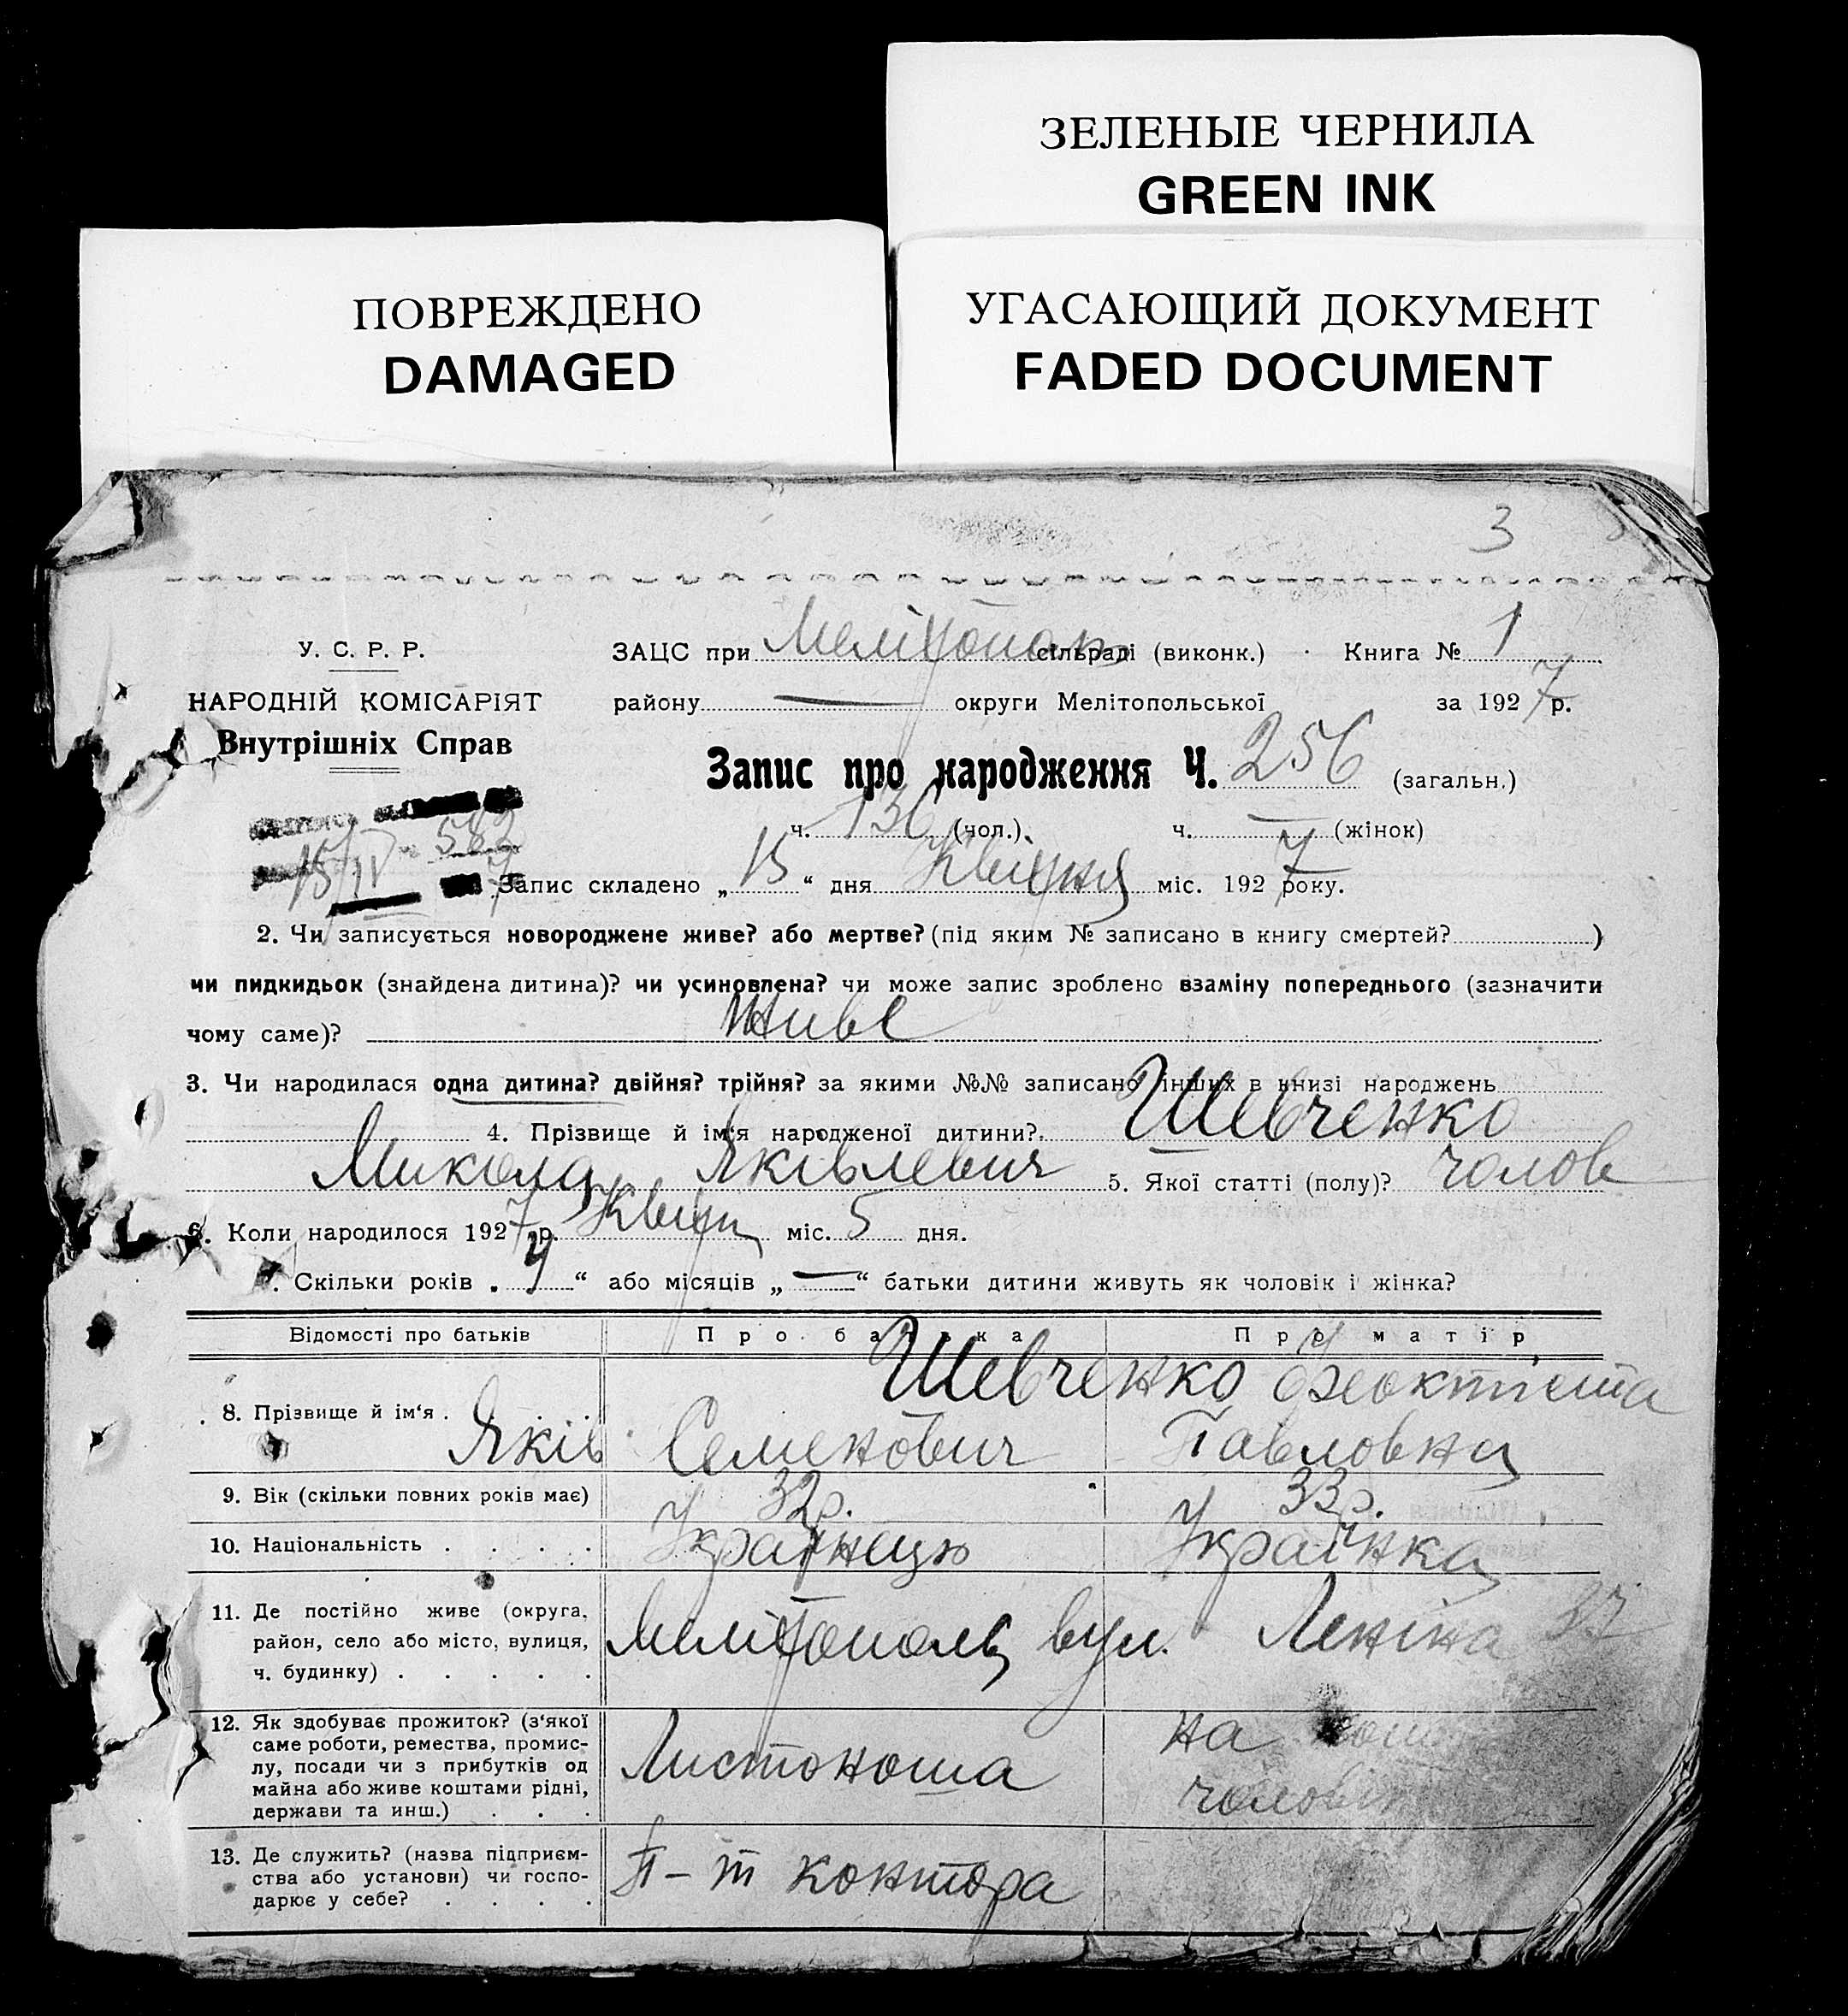 ЗЕЛЕНЫЕ ЧЕРНИЛА
GREEN INK
ПОВРЕЖДЕНО
DAMAGED
УГАСАЮЩИЙ ДОКУМЕНТ
FADED DOCUMENT
3
У. С. Р. Р.
НАРОДНІЙ КОМІСАРІЯТ
Внутрішніх Справ
ЗАЦС при Мелітопольс сільраді (виконк.) Книга № 1
району — округи Мелітопольської за 1927 р.
Запис про народження Ч. 256 (загальн.)
ч. 136 (чол.) ч. — (жінок)
582
15/IV 7
Запис складено „15“ дня Квітня міс. 1927 року.
2. Чи записується новороджене живе? або мертве? (під яким № записано в книгу смертей? )
чи пидкидьок (знайдена дитина)? чи усиновлена? чи може запис зроблено взаміну попереднього (зазначити
чому саме)? Живе
3. Чи народилася одна дитина? двійня? трійня? за якими №№ записано інших в книзі народжень
4. Прізвище й ім‘я народженої дитини? Шевченко
Микола Яківлевич 5. Якої статті (полу)? чолов
6. Коли народилося 1927 р. Квітн міс. 5 дня.
7. Скільки років „4“ або місяців „—“ батьки дитини живуть як чоловік і жінка?
Відомості про батьків Про батька Про матір
8. Прізвище й ім‘я . Шевченко Феоктиста
Яків Семенович Павловна
9. Вік (скільки повних років має) 32р. 33р.
10. Національність . . . . Українець Українка
11. Де постійно живе (округа,
район, село або місто, вулиця,
ч. будинку) . . . . .
Мелітополь вул. Леніна 37
12. Як здобуває прожиток? (з‘якої
саме роботи, ремества, промис-
лу, посади чи з прибутків од
майна або живе коштами рідні,
держави та инш.) . . .
Листоноша на
13. Де служить? (назва підприєм-
ства або установи) чи госпо-
дарює у себе? . . . .
П-т контора